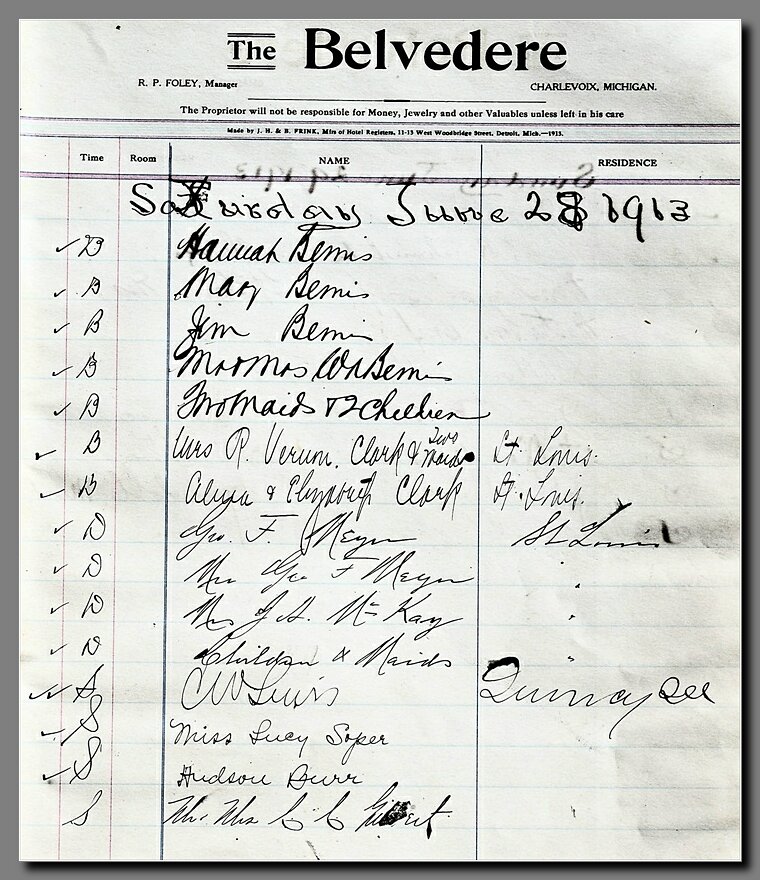 The Belvedere
R. P. FOLEY, Manager CHARLEVOIX, MICHIGAN.
The Proprietor will not be responsible for Money, Jewelry and other Valuables unless left in his care
Made by J. H. & B. FRINK, Mfrs of Hotel Registers, 11-13 West Woodbridge Street, Detroit, Mich.—1913.
Time Room NAME RESIDENCE
Saturday June 28 1913
B Hannah Bemis
B Mary Bemis
B Jim Bemis
B Mr & Mrs Bemis
B Two Maids & 2
B Mrs R. Vernon. Clark & Two Maids St. Louis.
B & Clark St. Louis.
D Geo. F. Meyer St Louis
D Mrs Geo F Meyer "
D Mrs Mc Kay "
D Children & Maids "
S Lewis Quincy Ill
S Miss Lucy Soper
S Hudson Burr
S Mr. Mrs C C